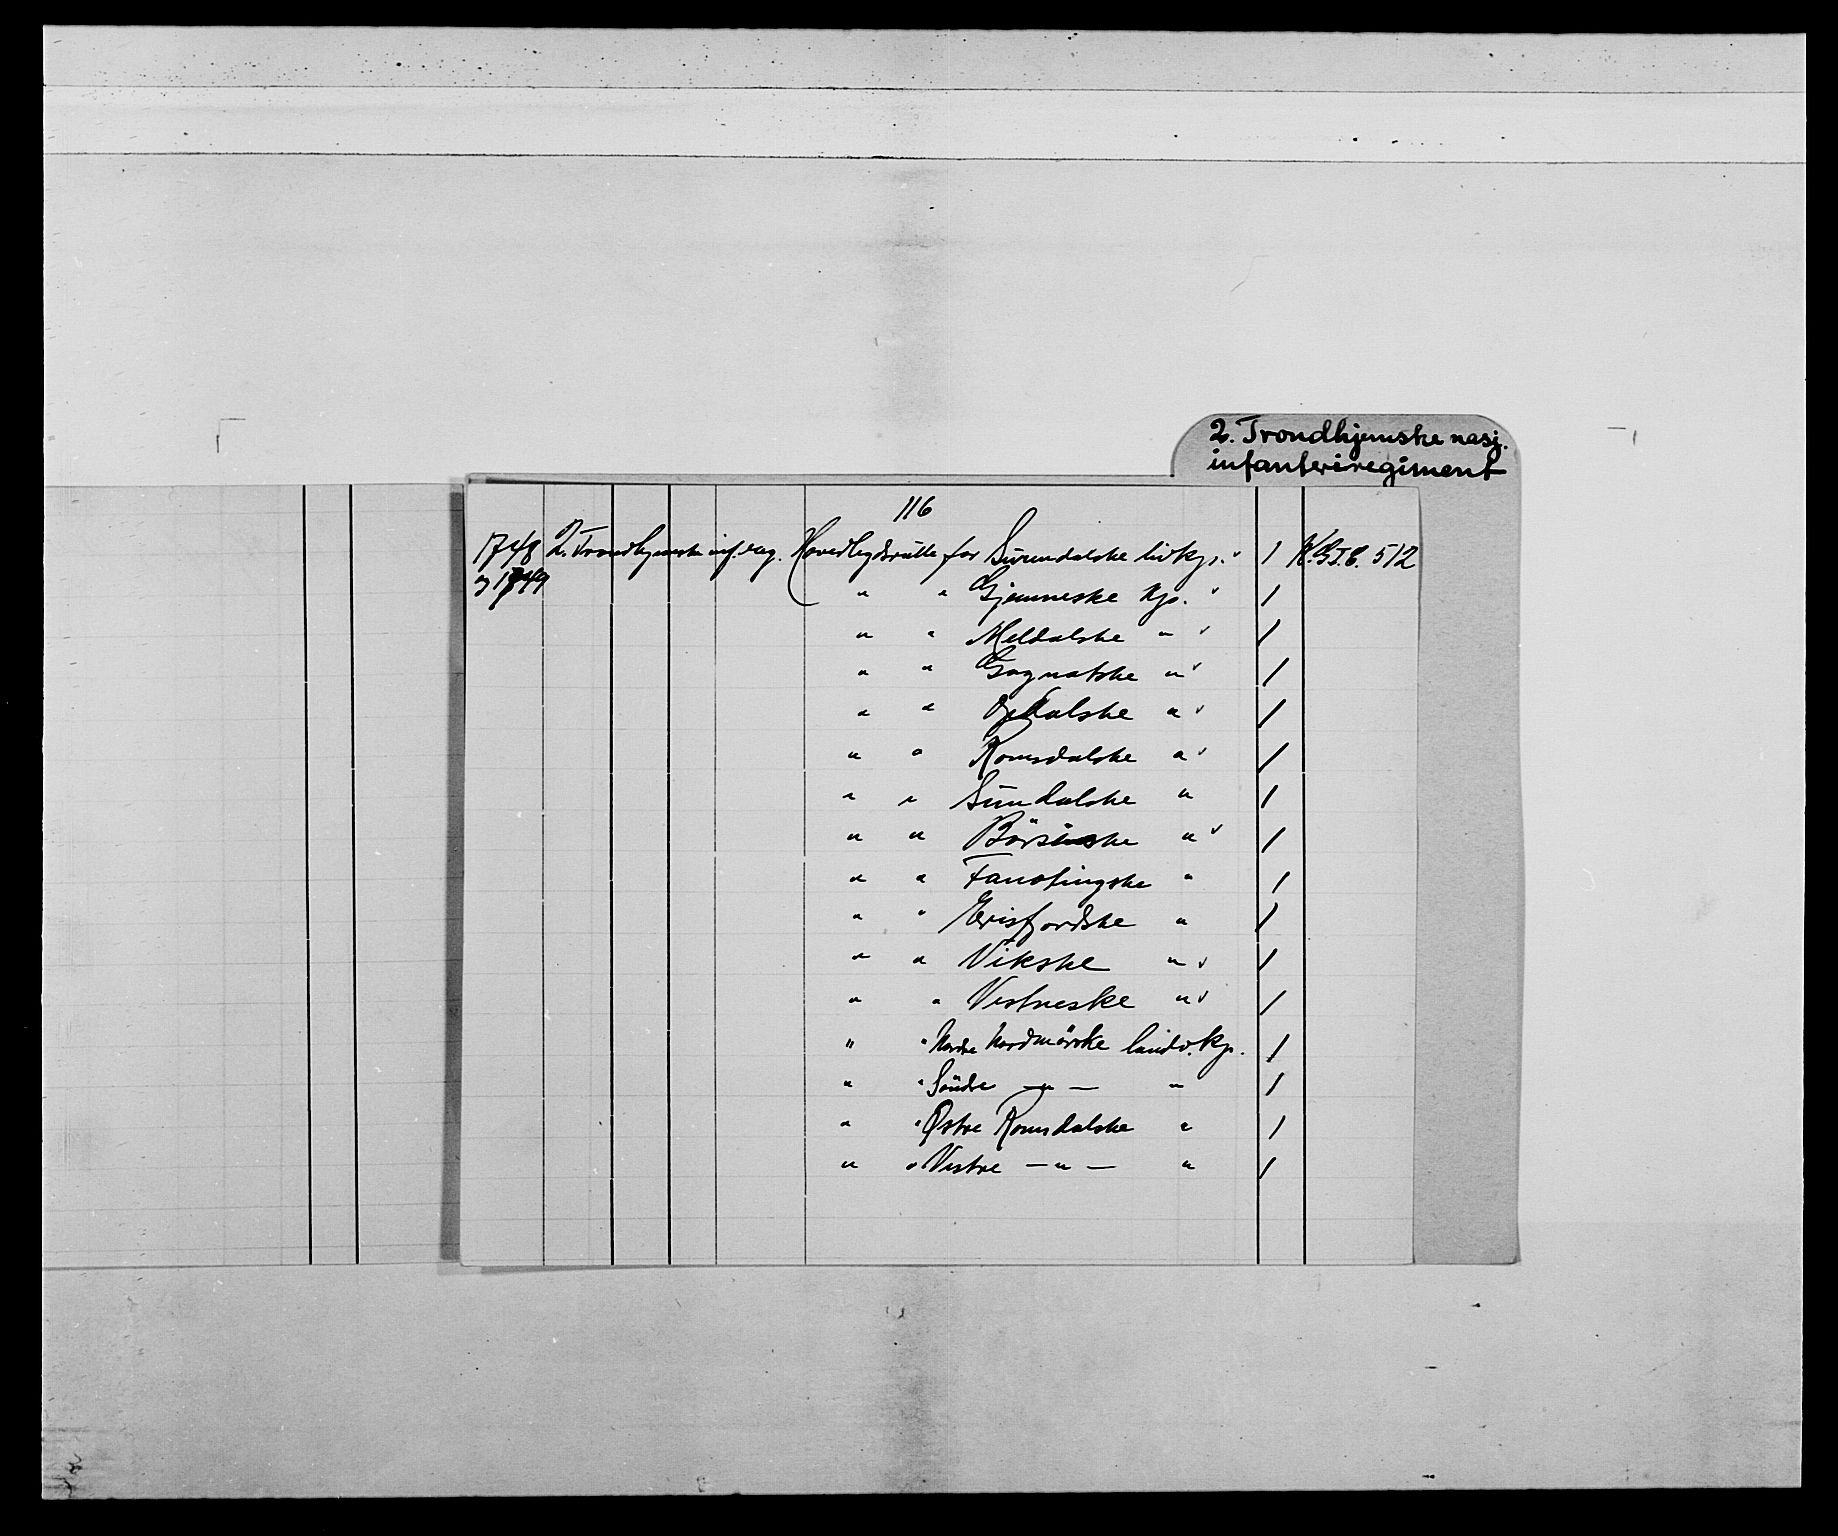 2. Trondhjemske nasj.
infanteriregiment
116
1748 2. Trondhjemske inf. reg. Hovedlegdsrulle for Surendalske livkp. 1 K.G.I.C. 512
og 1749 " " Gjemneske Kp. 1
" " Meldalske " 1
" " Gagnatske " 1
" " Opdalske " 1
" " Romsdalske " 1
" " Sundalske " 1
" " Börsinske " 1
" " Tanotingske " 1
" " Erisfjordske " 1
" " Vikske " 1
" " Vestneske " 1
" " Nordre Nordmörske landv. kp. 1
" " Söndre — " — " 1
" " Østre Romsdalske " 1
" " Vestre — " — " 1